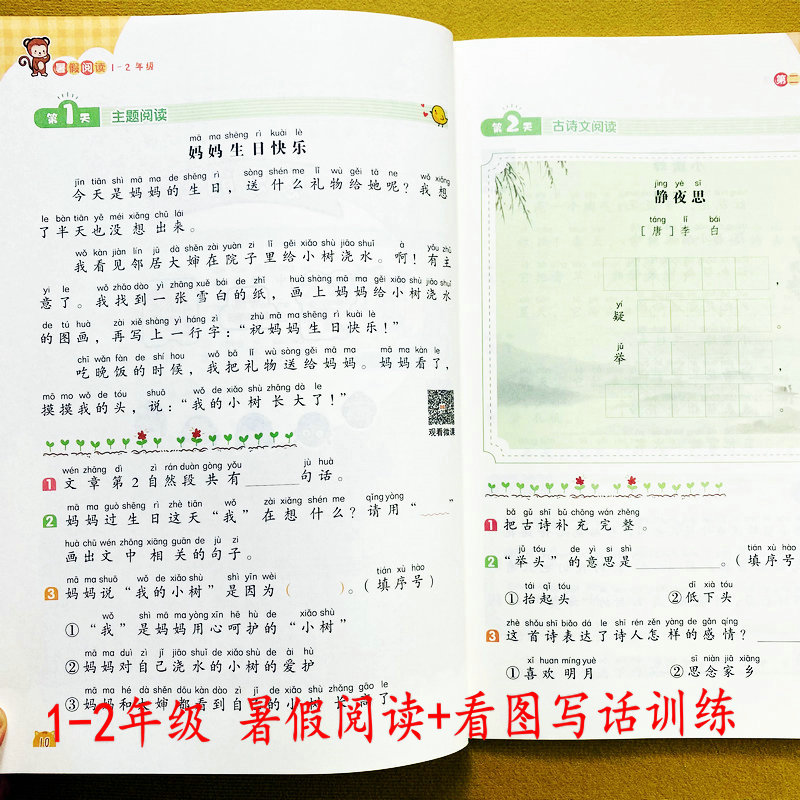 暑假阅读 1-2年级
第1天 主题阅读
mā ma shēng rì kuài lè
妈妈生日快乐
jīn tiān shì mā ma de shēng rì sòng shén me lǐ wù gěi tā ne wǒ xiǎng
今天是妈妈的生日，送什么礼物给她呢？我想
le bàn tiān yě méi xiǎng chū lái
了半天也没想出来。
wǒ kàn jiàn lín jū dà shěn zài yuàn zi lǐ gěi xiǎo shù jiāo shuǐ à yǒu zhǔ
我看见邻居大婶在院子里给小树浇水。啊！有主
yì le wǒ zhǎo dào yì zhāng xuě bái de zhǐ huà shàng mā ma gěi xiǎo shù jiāo shuǐ
意了。我找到一张雪白的纸，画上妈妈给小树浇水
de tú huà zài xiě shàng yì háng zì zhù mā ma shēng rì kuài lè
的图画，再写上一行字：“祝妈妈生日快乐！”
chī wǎn fàn de shí hou wǒ bǎ lǐ wù sòng gěi mā ma mā ma kàn le
吃晚饭的时候，我把礼物送给妈妈。妈妈看了，
mō mo wǒ de tóu shuō wǒ de xiǎo shù zhǎng dà le
摸摸我的头，说：“我的小树长大了！”
观看微课
wén zhāng dì zì rán duàn gòng yǒu jù huà
1 文章第2自然段共有______句话。
mā ma guò shēng rì zhè tiān wǒ zài xiǎng shén me qǐng yòng
2 妈妈过生日这天“我”在想什么？请用“——”
huà chū wén zhōng xiāng guān de jù zi
画出文中相关的句子。
mā ma shuō wǒ de xiǎo shù shì yīn wèi tián xù hào
3 妈妈说“我的小树”是因为（ ）。（填序号）
wǒ shì mā ma yòng xīn hē hù de xiǎo shù
①“我”是妈妈用心呵护的“小树”
mā ma duì zì jǐ jiāo shuǐ de xiǎo shù de ài hù
②妈妈对自己浇水的小树的爱护
mā ma hé dà shěn dōu kàn dào zì jǐ de xiǎo shù zhǎng gāo le
③妈妈和大婶都看到自己的小树长高了
10
第二
第2天 古诗文阅读
jìng yè sī
静夜思
táng lǐ bái
［唐］李白
yí
疑
。
jǔ
举
。
bǎ gǔ shī bǔ chōng wán zhěng
1 把古诗补充完整。
jǔ tóu de yì si shì tián xù hào
2 “举头”的意思是________。（填序号）
tái qǐ tóu dī xià tóu
①抬起头 ②低下头
zhè shǒu shī biǎo dá le shī rén zěn yàng de gǎn qíng
3 这首诗表达了诗人怎样的感情？____
xǐ huan míng yuè sī niàn jiā xiāng
①喜欢明月 ②思念家乡
1-2年级 暑假阅读+看图写话训练